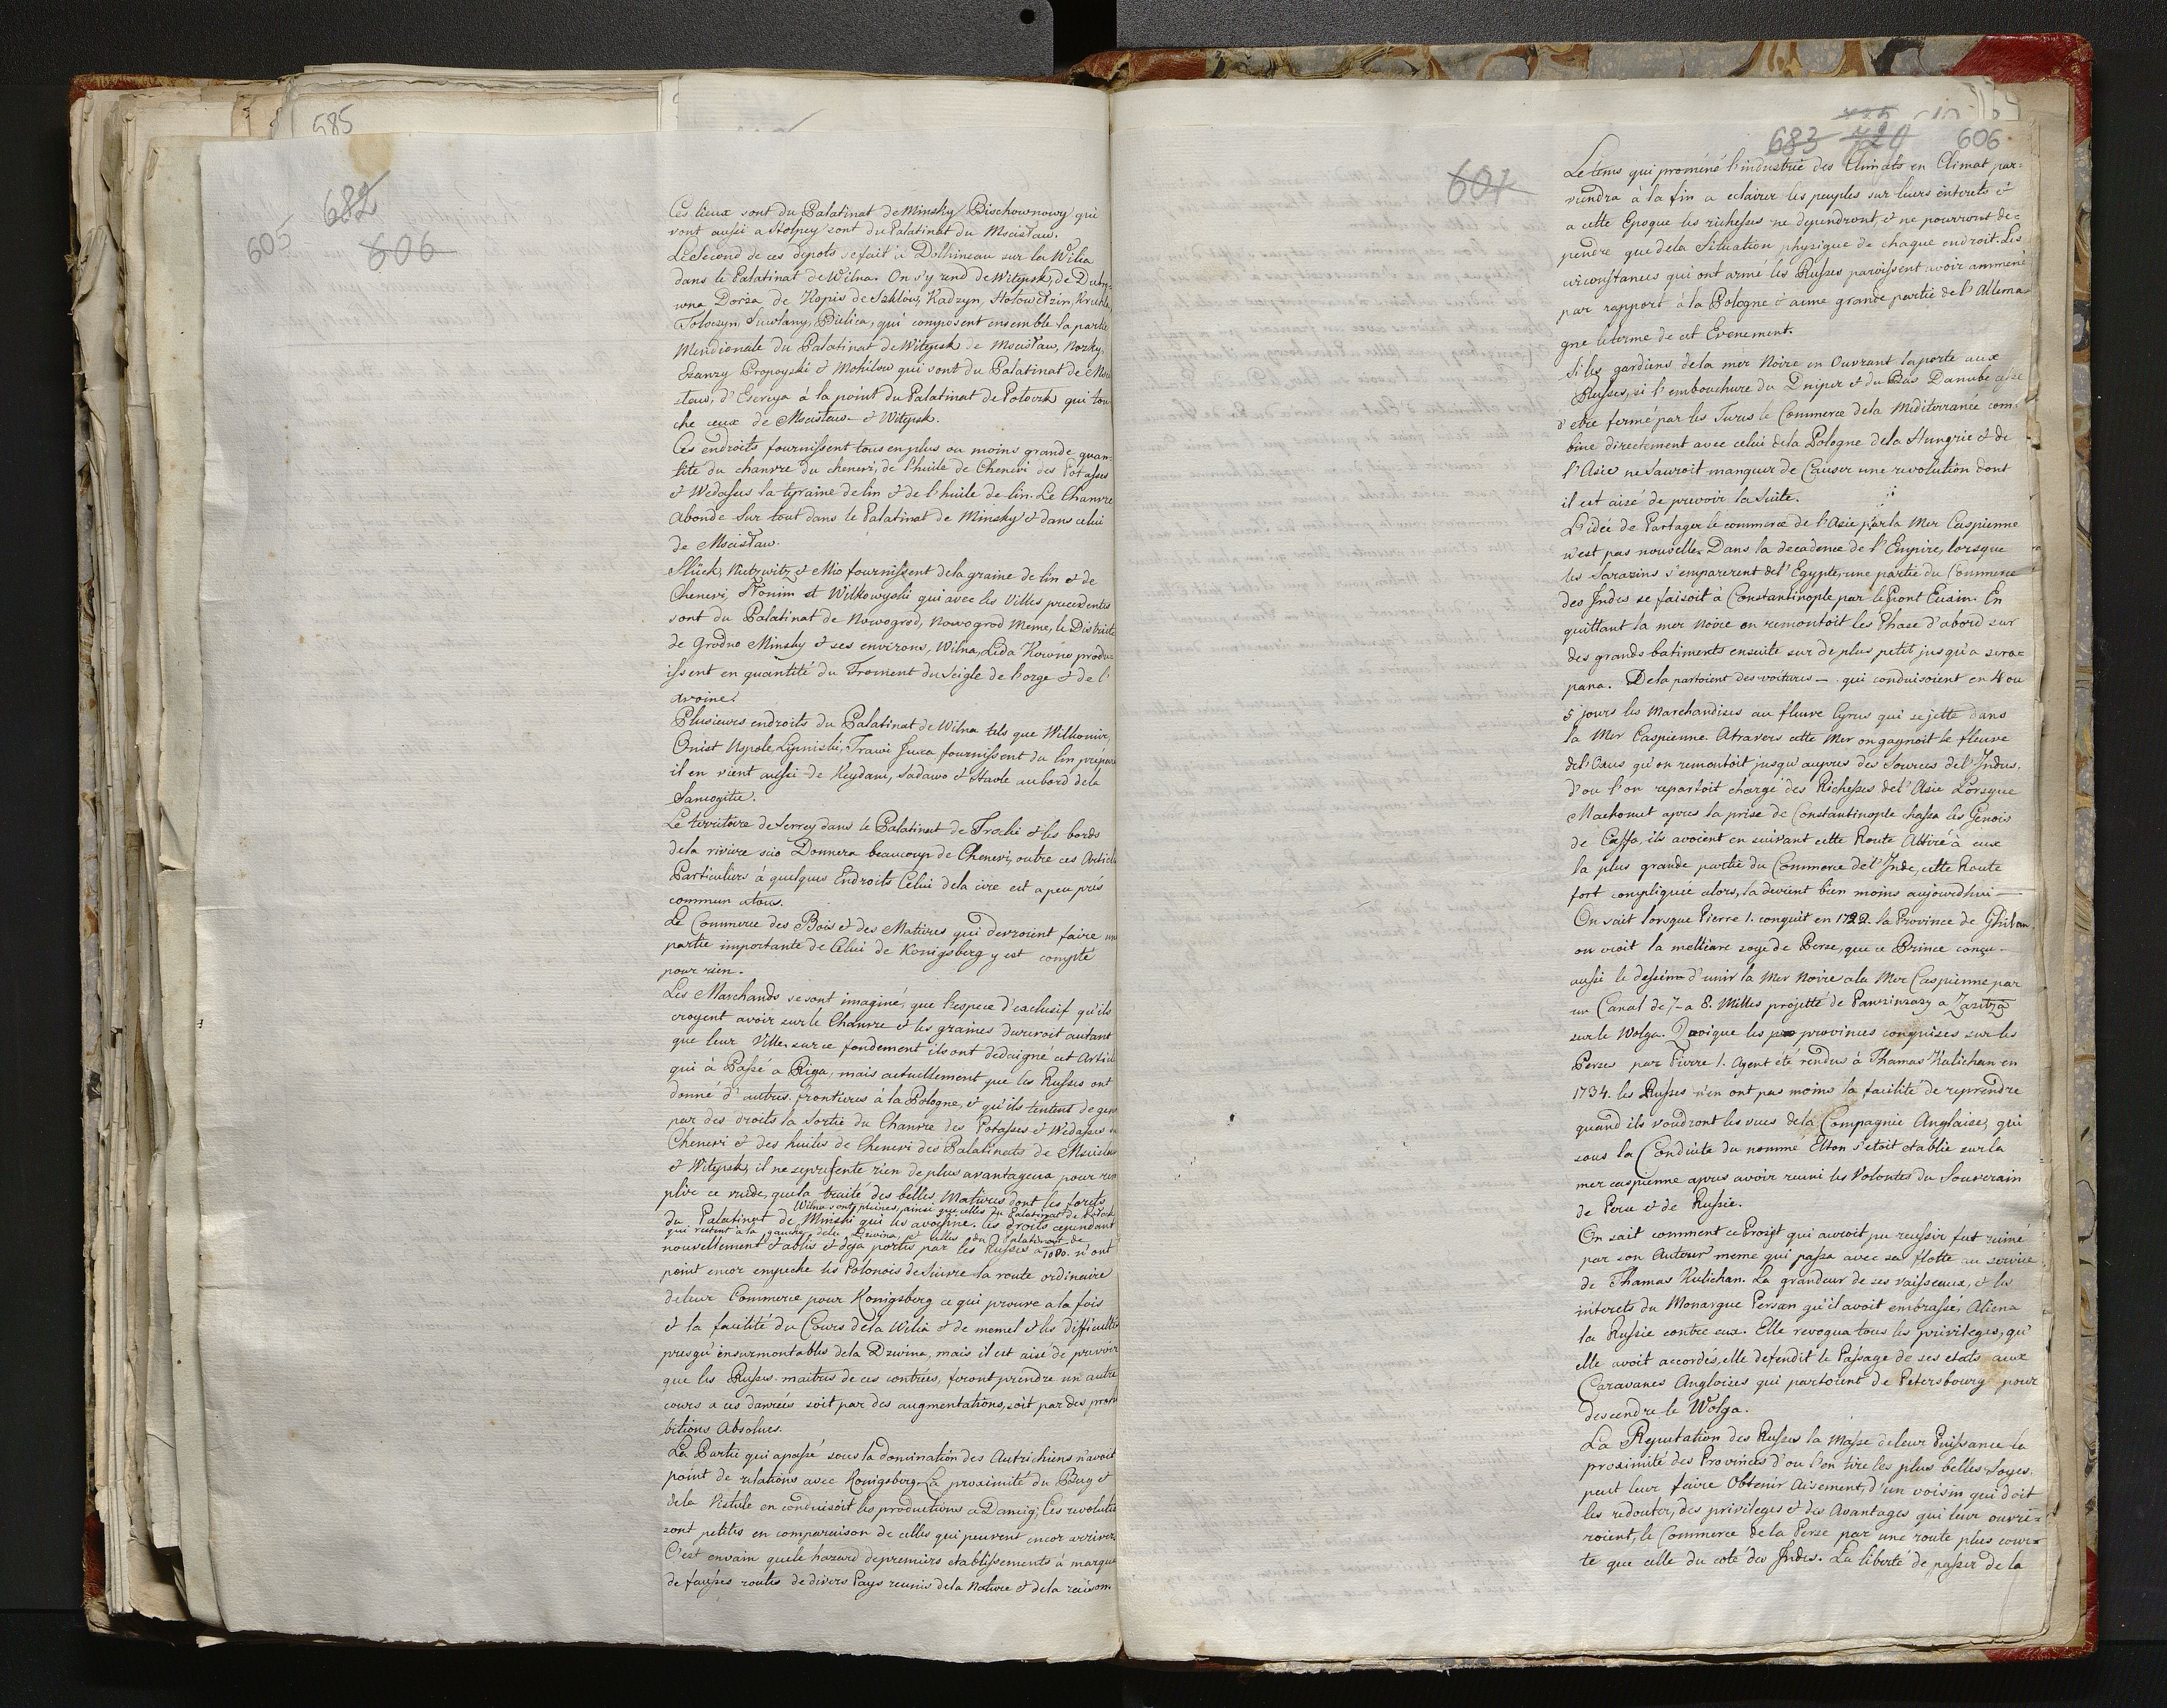 585
682
605 606
Ces lieux sont du Palatinat de Minsky Bischownowy qui
vont aussi a Stolpey sont du Palatinat du Mscislaw.
Le Second de ces depots se fait à Dolhineau sur la Wilia
dans le Palatinat de Wilna. On s'y rend de Witepsk, de Dubro-
wna Dorsa, de Kopis de Szklow, Kadzyn, Holowctzin, Kruhle,
Tolocsyn Suwlany, Bielica, qui composent ensemble la partie
Meridionale du Palatinat de Witepsk de Mscislaw, Norky,
Szanzy Propoyski & Mohilow qui sont du Palatinat de Msci
slaw, d'Esereya à la point du Palatinat de Polock qui tou
che ceux de Mscislaw & Witepsk.
Ces endroits fournissent tous en plus ou moins grande quan
tité du chanvre du chenevi, de l'huile de Chenevi des Potasses
& Wedasses la graine de lin & de l'huile de lin. Le Chanvre
abonde Sur tout dans le Palatinat de Minsky & dans celui
de Mscislaw.
Sluck, Kutzwitz & Mio fournissent de la graine de lin & de
Chenevi, Slonim et Wilkowyski qui avec les Villes precedentes
sont du Palatinat de Nowogrod, Nowogrod meme, le Districte
de Grodno Minsky & ses environs, Wilna, Lida Kowno produ-
issent en quantité du Froment du Seigle de l'orge & de l'
avoine.
Plusieures endroits du Palatinat de Wilna tels que Wilkomir,
Onist Uspole Lipniski, Trawi Juxa fournissent du lin préparé
il en vient aussi de Keydani, Sadawo & Stavle au bord de la
Samogitie.
Le territoire de Serrey dans le Palatinat de Trocki & les bords
de la riviere scio Donnera beaucoup de Chenevi, outre ces Articles
Particuliers à quelques Endroits Celui de la cire est a peu près
commun a tous.
Le Commerce des Bois & des Matures qui devroient faire une
partie importante de Celui de Konigsberg y est compté
pour rien.
Les Marchands se sont imaginé, que l'espece d'exclusif qu'ils
croyent avoir sur le Chanvre & les graines dureroit autant
que leur Ville, sur ce fondement ils ont dedaigné cet Article
qui à Passé a Riga, mais actuellement que les Russes ont
donné d'autres frontieres à la Pologne, & qu'ils tentent de gener
par des droits la Sortie du Chanvre des Potasses & Wedasses du
Chenevi & des huiles de Chenevi des Palatinats de Mscislaw
& Witepsk, il ne se presente rien de plus avantageux pour rem
plir ce vuide, que la traite des belles Matures dont les forets
Wilna sont pleines, ainsi que celles du Palatinat de Polock
du Palatinat de Minski qui les avoisine. les droits cependant
qui restent à la gauche de la Dzwina, et celles du Palatinat de
nouvellement établis & deja portés par les Russes à 10 pc. n'ont
point encor empeché les Polonois de Suivre la route ordinaire
de leur Commerce pour Konigsberg ce qui prouve a la fois
& la facilité du Cours de la Wilia & de memel & les difficultés
presqu'insurmontables de la Dzwina, mais il est aisé de prevoir
que les Russes maitres de ces contrées, feront prendre un autre
cours a ces danrées soit par des augmentations, soit par des prohi
bitions Absolues.
La Partie qui a passé sous la domination des Autrichiens n'avoit
point de relations avec Konigsberg. La proximité du Bug et
de la Vistule en conduisoit les productions a Danzig, Ces revolutions
sont petites en comparaison de celles qui peuvent encor arriver.
C'est en vain que le hazard de premiers etablissements à marqué
de fausses routes de divers Pays reunis de la Nature & de la raison.
725
683 724 606.
607
Le tems qui proméné l'industrie des Climats en Climat par-
viendra à la fin a eclairer les peuples sur leurs interets &
a cette Epoque les richesses ne dependront, & ne pourront de-
pendre que de la Situation physique de chaque endroit. Les
circonstances qui ont armé les Russes paroissent avoir ammené
par rapport à la Pologne & a une grande partie de l'Allema-
gne le terme de cet Evenement.
Si les gardiens de la mer Noire en Ouvrant la porte aux
Russes, si l'embouchure du Dniper et du Bas Danube cesse
d'etre fermé par les Turcs le Commerce de la Mediterranée com-
biné directement avec celui de la Pologne de la Hungrie & de
l'Asie ne Sauroit manquer de Causer une revolution dont
il est aisé de prevoir la Suite.
L'idée de Partager le commerce de l'Asie par la Mer Caspienne
n'est pas nouvelle. Dans la decadence de l'Empire, lorsque
les Sarazins s'emparerent de l'Egypte, une partie du Commerce
des Indes se faisoit à Constantinople par le Pont Euxin. En
quittant la mer Noire on remontoit les Phase d'abord sur
des grands batiments ensuite sur de plus petit jusqu'a sera-
pana. De la partoient des voitures — qui conduisoient en 4 ou
5 jours les Marchandises au fleuve Cyrus qui se jette dans
la Mer Caspienne. Atravers cette Mer on gagnoit le fleuve
de l'Oxus qu'on remontoit jusqu'aupres des Sources de l'Indus,
d'ou l'on repartoit chargé des Richesses de l'Asie Lorsque
Machomet apres la prise de Constantinople chassa les Genois
de Caffa, ils avoient en suivant cette Route Attiré à eux
la plus grande partie du Commerce de l'Inde, cette Route
fort compliquée alors, la devient bien moins aujourdhui —
On sait lorsque Pierre 1. conquit en 1722. la Province de Ghilan
ou croit la meilliare soye de Perse, que ce Prince conçu
aussi le dessein d'unir la Mer Noire a la Mer Caspienne par
un Canal de 7 a 8. Milles projetté de Panszinzasy a Zaritza
sur le Wolga. Quoique les provinces conquises sur les
Perses par Pierre 1. Ayent été rendus à Thamas Kulichan en
1734. les Russes n'en ont pas moins la facilité de reprendre
quand ils voudront les vues de la Compagnie Anglaise, qui
sous la Conduite du nommé Elton s'etoit etablie sur la
mer caspienne apres avoir reuni les Volontes du Souverain
de Perse et de Russie.
On sait comment ce Projet qui auroit pu reussir fut ruiné
par son Auteur meme qui passa avec sa flotte au service
de Thamas Kulichan. La grandeur de ses vaisseaux, & les
interets du Monarque Persan qu'il avoit embrassé, Aliena
la Russie contre eux. Elle revoqua tous les privileges, qu'
elle avoit accordés, elle defendit le Passage de ses etats aux
Caravanes Angloises qui partoient de Petersbourg pour
descendre le Wolga.
La Reputation des Russes la Masse de leur Puissance la
proximité des Provinces d'ou l'on tire les plus belles Soyes,
peut leur faire Obtenir Aisement, d'un voisin qui doit
les redouter, des privileges & des Avantages qui leur ouvri-
roient, le Commerce de la Perse par une route plus cour-
te que celle du coté des Indes. La liberté de passer de la